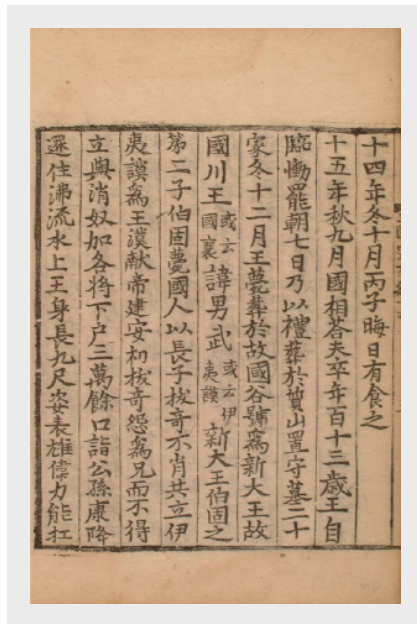 十四年冬十月丙子晦日有食之
十五年秋九月國相荅夫卒年百十三歲王自
臨慟罷朝七日乃以禮葬於質山置守墓二十
家冬十二月王薨葬於故國谷號爲新大王故
國川王或云國襄諱男武或云伊夷謨新大王伯固之
第二子伯固薨國人以長子拔奇不肖共立伊
夷謨爲王漢献帝建安初拔奇怨爲兄而不得
立與消奴加各將下户三萬餘口詣公孫康降
還住沸流水上王身長九尺姿表雄偉力能扛